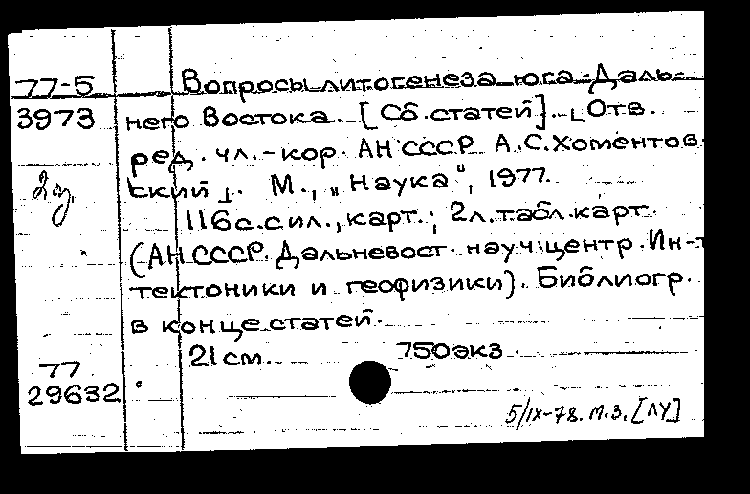 77-5 Вопросы литогенеза юга Даль-
3973 него Востока. [Сб.статей]. ⌊Отв.
ред. чл.-кор. АН СССР А.С.Хоментов
2 эз. ский⌋. М., „Наука", 1977.
116с.с ил., карт.; 2л.табл.карт.
(АН СССР. Дальневост. науч.центр. Ин-т
тектоники и геофизики). Библиогр.
в конце статей.
77 21 см. 750экз.
29632
5/IX-78. М.З. [ЛУ]